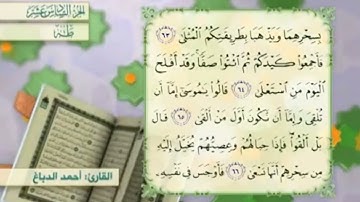 الجزء السادس عشر
طه
بِسِحْرِهِمَا وَيَذْهَبَا بِطَرِيقَتِكُمُ الْمُثْلَىٰ ٦٣
فَأَجْمِعُوا كَيْدَكُمْ ثُمَّ ائْتُوا صَفًّا وَقَدْ أَفْلَحَ
الْيَوْمَ مَنِ اسْتَعْلَىٰ ٦٤ قَالُوا يَا مُوسَىٰ إِمَّا أَن
تُلْقِيَ وَإِمَّا أَن نَّكُونَ أَوَّلَ مَنْ أَلْقَىٰ ٦٥ قَالَ
بَلْ أَلْقُوا فَإِذَا حِبَالُهُمْ وَعِصِيُّهُمْ يُخَيَّلُ إِلَيْهِ
مِن سِحْرِهِمْ أَنَّهَا تَسْعَىٰ ٦٦ فَأَوْجَسَ فِي نَفْسِهِ
القارئ: أحمد الدباغ